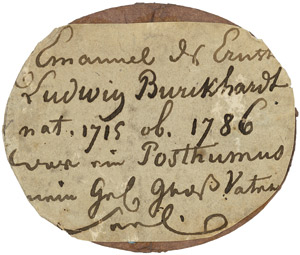 Emanuel
Ludwig Burckhardt
nat. 1715 ob. 1786
war ein Posthumus
mein Groß Vaters